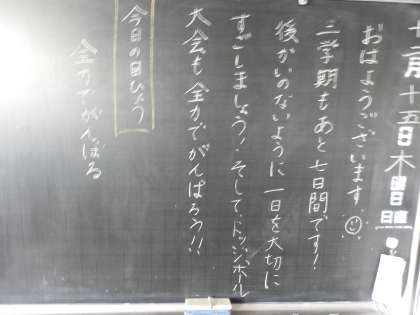 十二月十五日木曜日
日直
おはようございます
二学期もあと七日間です!
後かいのないように一日を大切に
すごしましょう!そして、ドッジボール
大会も全力でがんばろう!!
今日の目ひょう
全力でがんばる